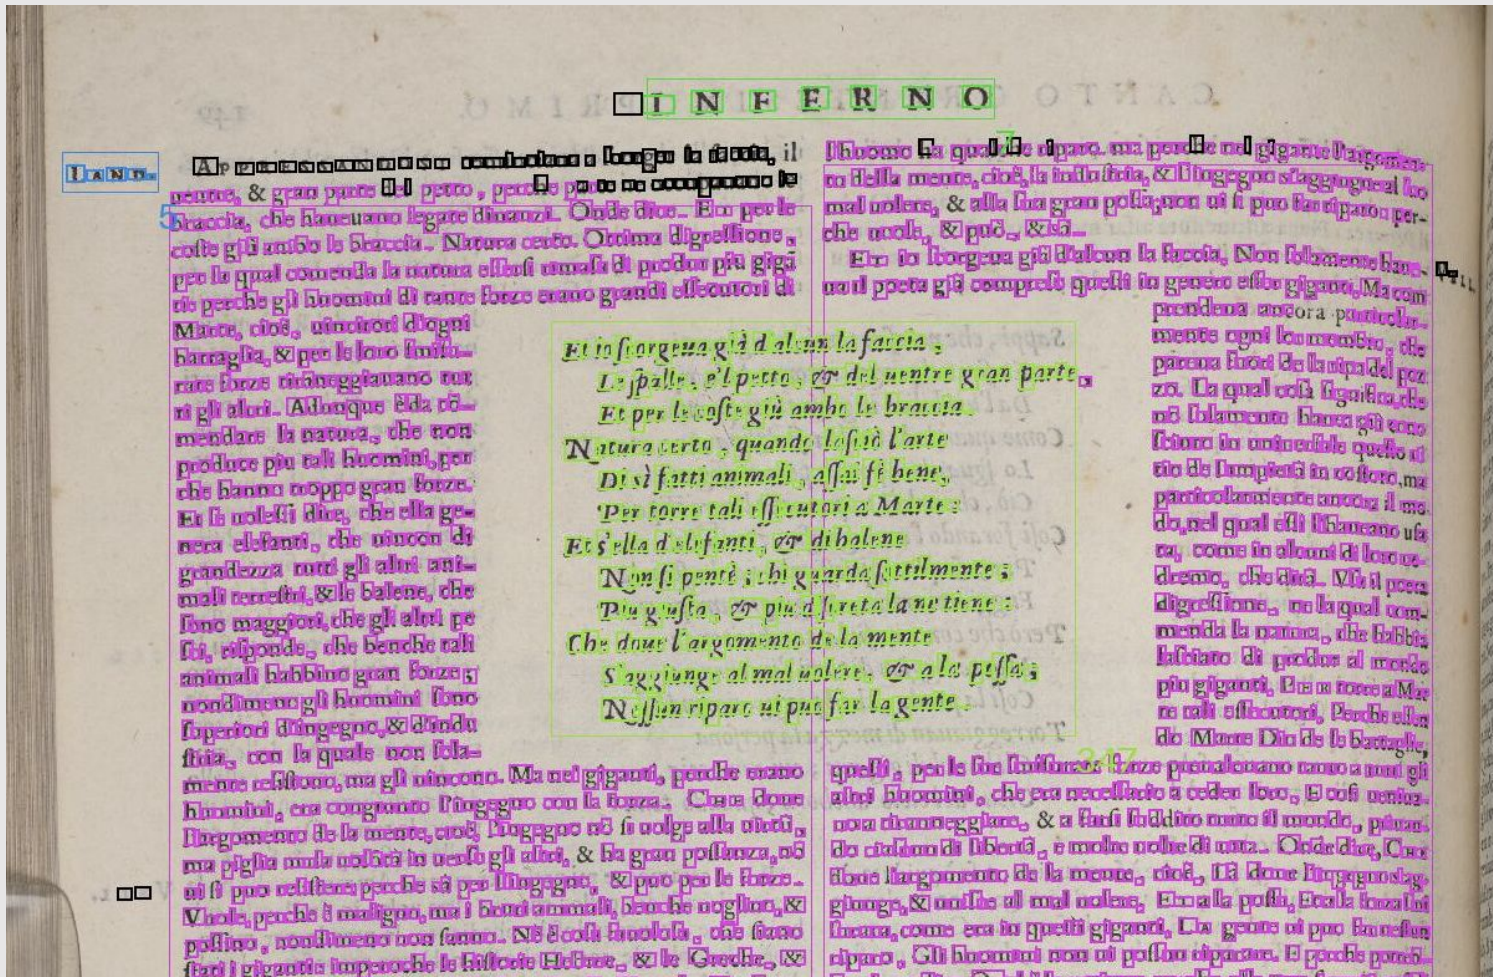 INFERNO
LAND.
APPRESSANDOMI cominciano a scorger la faccia, il
uentre, & gran parte del petto, perche
braccia, che haueuano legate dinanzi. Onde dice. ET per le
coste giù ambo le braccia. Natura certo. Ottima digressione,
per la qual comenda la natura essersi rimasa di produr più gigã
ti: perche gli huomini di tante forze erano grandi essecutori di
Marte, cioè, uincitori d'ogni
battaglia, & per le loro smisu-
rate forze tiranneggiauano tut
ti gli altri. Adunque è da cõ-
mendare la natura, che non
produce piu tali huomini, per
che hanno troppo gran forze.
Et se uolessi dire, che ella ge-
nera elefanti, che uincon di
grandezza tutti gli altri ani-
mali terrestri, & le balene, che
sono maggiori, che gli altri pe
sci, risponde, che benche tali
animali habbino gran forze;
nondimeno gli huomini sono
superiori d'ingegno, & d'indu
stria, con la quale non sola-
mente resistono, ma gli uincono. Ma nei giganti, perche erano
huomini, era congiunto l'ingegno con la forza. CHE doue
l'argomento de la mente, cioè, l'ingegno nõ si uolge alla uirtù,
ma piglia mala uolõtà in uerso gli altri, & ha gran possanza, nõ
ui si puo resistere: perche sà per l'ingegno, & può per le forze.
Vuole, perche è maligno, ma i bruti animali, benche uoglino, &
possino, nondimeno non sanno. Nè è cosa fauolosa, che siano
stati i giganti: imperoche le historie Hebree, & le Greche, &
Et io scorgeua già d'alcun la faccia,
Le spalle, e'l petto, & del uentre gran parte,
Et per le coste giù ambo le braccia.
Natura certo, quando lasciò l'arte
Di sì fatti animali, assai fè bene,
Per torre tali essecutori a Marte:
Et s'ella d'elefanti, & di balene
Non si pentè; chi guarda sottilmente;
Piu giusta, & piu discreta la ne tiene:
Che doue l'argomento de la mente
S'aggiunge al mal uolere, & a la possa;
Nessun riparo ui puo far la gente.
l'huomo ha qualche riparo. ma perche nel gigante l'argomen-
to della mente, cioè, la industria, & l'ingegno s'aggiugne al suo
mal uolere, & alla sua gran possa; non ui si puo far riparo: per-
che uuole, & può, & sà.
ET io scorgeua già d'alcun la faccia, Non solamente haue-
ua il poeta già compreso questi in genere esser giganti, Ma com
prendeua ancora particular-
mente ogni lor membro, che
pareua fuori de la ripa del poz
zo. La qual cosa significa, che
nõ solamente haueua già cono
sciuto in uniuersale quello ui
tio de l'impietà in costoro, ma
particolarmente ancora il mo
do, nel qual essi l'haueano usa
ta, come in alcuni di loro ue-
dremo, che dirà. Vsa il poeta
digressione, ne la qual com-
menda la natura, che habbia
lasciato di produr al mondo
piu giganti, PER torre a Mar
te tali essecutori, Perche essen
do Marte Dio de le battaglie,
questi, per le sue smisurate forze preualeuano tanto a tutti gli
altri huomini, che era necessario a ceder loro, E cosi ueniua-
no a tiranneggiare, & a farsi suddito tutto il mondo, priuan-
do ciascuno di libertà, e molte uolte di uita. Onde dice, CHE
doue l'argomento de la mente, cioè, Là doue l'ingegno s'ag-
giunge, & unisce al mal uolere, ET a la possa, Et a la forza sui
scurata, come era in questi giganti, LA gente ui puo far nessun
riparo, Gli huomini non ui posson riparare. E perche potreb-
VELL.